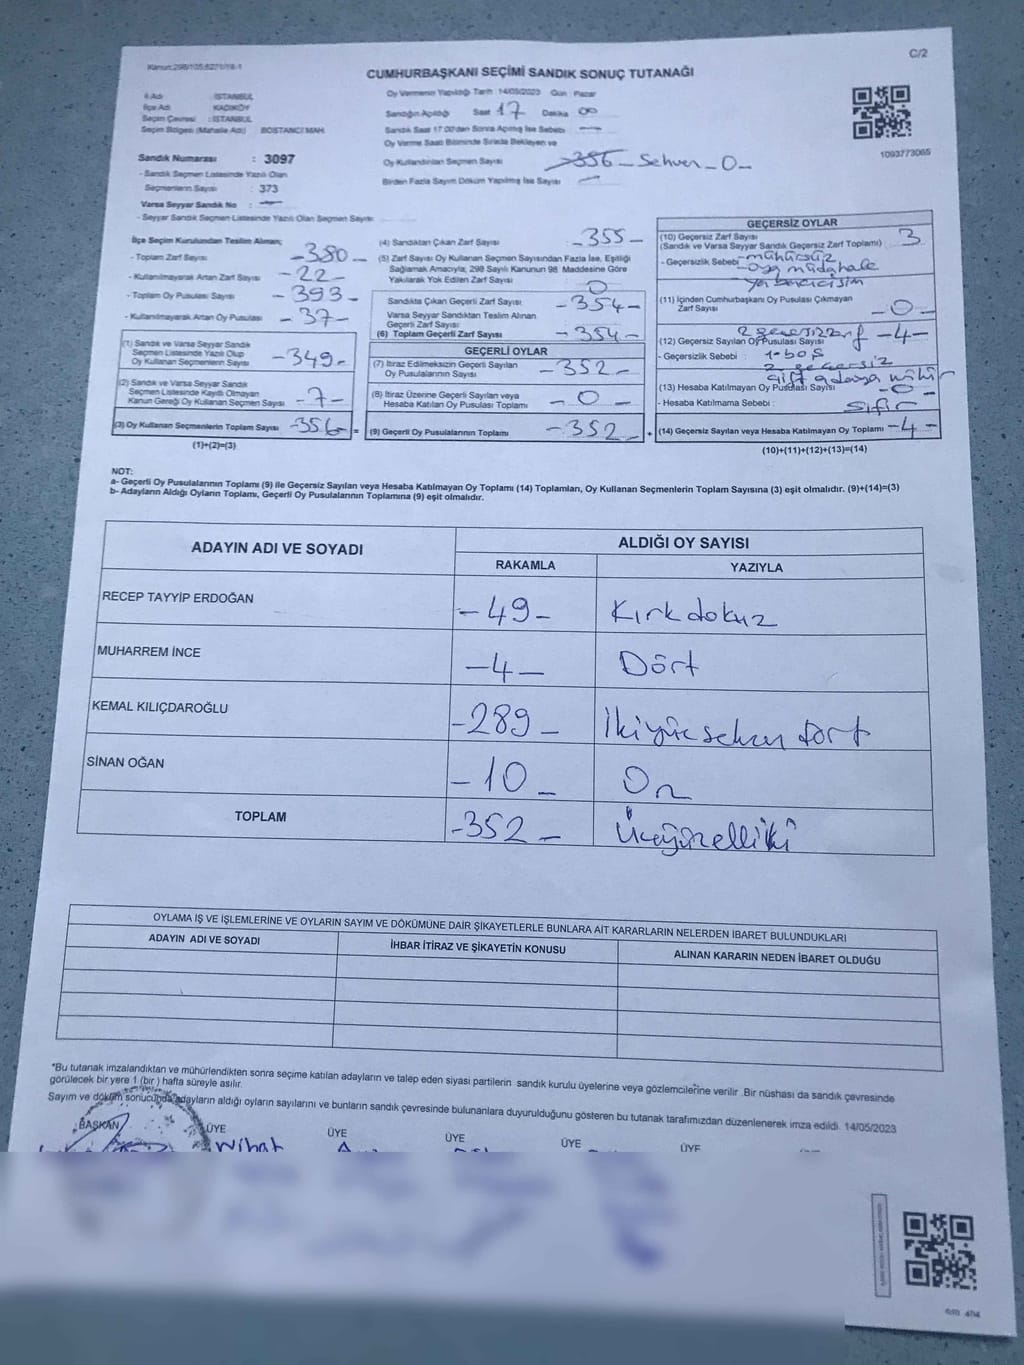 Kanun:298/105,6271/Y8-1
C/2
CUMHURBAŞKANI SEÇİMİ SANDIK SONUÇ TUTANAĞI
İl Adı : İSTANBUL
İlçe Adı : KADIKÖY
Seçim Çevresi : İSTANBUL
Seçim Bölgesi (Mahalle Adı) BOSTANCI MAH.
Sandık Numarası : 3097
- Sandık Seçmen Listesinde Yazılı Olan
Seçmenlerin Sayısı : 373
Varsa Seyyar Sandık No :
- Seyyar Sandık Seçmen Listesinde Yazılı Olan Seçmen Sayısı:
Oy Vermenin Yapıldığı Tarih : 14/05/2023 Gün : Pazar
Sandığın Açıldığı Saat 17 Dakika 00
Sandık Saat 17:00'den Sonra Açılmış İse Sebebi :
Oy Verme Saati Bitiminde Sırada Bekleyen ve
Oy Kullandırılan Seçmen Sayısı 356 - Sehven - 0 -
Birden Fazla Sayım Döküm Yapılmış İse Sayısı
1093773065
İlçe Seçim Kurulundan Teslim Alınan;
- Toplam Zarf Sayısı - 380 -
- Kullanılmayarak Artan Zarf Sayısı - 22 -
- Toplam Oy Pusulası Sayısı - 393 -
- Kullanılmayarak Artan Oy Pusulası - 37 -
(1) Sandık ve Varsa Seyyar Sandık
Seçmen Listesinde Yazılı Olup
Oy Kullanan Seçmenlerin Sayısı - 349 -
(2) Sandık ve Varsa Seyyar Sandık
Seçmen Listesinde Kayıtlı Olmayan
Kanun Gereği Oy Kullanan Seçmen Sayısı - 7 -
(3) Oy Kullanan Seçmenlerin Toplam Sayısı - 356 - =
(1)+(2)=(3)
(4) Sandıktan Çıkan Zarf Sayısı - 355 -
(5) Zarf Sayısı Oy Kullanan Seçmen Sayısından Fazla İse, Eşitliği
Sağlamak Amacıyla, 298 Sayılı Kanunun 98. Maddesine Göre
Yakılarak Yok Edilen Zarf Sayısı 0
Sandıkta Çıkan Geçerli Zarf Sayısı - 354 -
Varsa Seyyar Sandıktan Teslim Alınan
Geçerli Zarf Sayısı
(6) Toplam Geçerli Zarf Sayısı - 354 -
GEÇERLİ OYLAR
(7) İtiraz Edilmeksizin Geçerli Sayılan
Oy Pusulalarının Sayısı - 352 -
(8) İtiraz Üzerine Geçerli Sayılan veya
Hesaba Katılan Oy Pusulası Toplamı - 0 -
(9) Geçerli Oy Pusulalarının Toplamı - 352 - +
GEÇERSİZ OYLAR
(10) Geçersiz Zarf Sayısı
(Sandık ve Varsa Seyyar Sandık Geçersiz Zarf Toplamı) 3
- Geçersizlik Sebebi - mühürsüz
- oya müdahale
yabancı cisim
(11) İçinden Cumhurbaşkanı Oy Pusulası Çıkmayan
Zarf Sayısı - 0 -
2 geçersiz zarf - 4 -
(12) Geçersiz Sayılan Oy Pusulası Sayısı
- Geçersizlik Sebebi : 1-boş
2 geçersiz
çift adaya mühür
(13) Hesaba Katılmayan Oy Pusulası Sayısı - 0 -
- Hesaba Katılmama Sebebi : sıfır
(14) Geçersiz Sayılan veya Hesaba Katılmayan Oy Toplamı - 4 -
(10)+(11)+(12)+(13)=(14)
NOT:
a- Geçerli Oy Pusulalarının Toplamı (9) ile Geçersiz Sayılan veya Hesaba Katılmayan Oy Toplamı (14) Toplamları, Oy Kullanan Seçmenlerin Toplam Sayısına (3) eşit olmalıdır. (9)+(14)=(3)
b- Adayların Aldığı Oyların Toplamı, Geçerli Oy Pusulalarının Toplamına (9) eşit olmalıdır.
ADAYIN ADI VE SOYADI
ALDIĞI OY SAYISI
RAKAMLA YAZIYLA
RECEP TAYYİP ERDOĞAN - 49 - Kırkdokuz
MUHARREM İNCE - 4 - Dört
KEMAL KILIÇDAROĞLU - 289 - İkiyüzseksen dört
SİNAN OĞAN - 10 - On
TOPLAM - 352 - Üçyüzelliiki
OYLAMA İŞ VE İŞLEMLERİNE VE OYLARIN SAYIM VE DÖKÜMÜNE DAİR ŞİKAYETLERLE BUNLARA AİT KARARLARIN NELERDEN İBARET BULUNDUKLARI
ADAYIN ADI VE SOYADI İHBAR İTİRAZ VE ŞİKAYETİN KONUSU ALINAN KARARIN NEDEN İBARET OLDUĞU
*Bu tutanak imzalandıktan ve mühürlendikten sonra seçime katılan adayların ve talep eden siyasi partilerin sandık kurulu üyelerine veya gözlemcilerine verilir. Bir nüshası da sandık çevresinde
görülecek bir yere 1 (bir) hafta süreyle asılır.
Sayım ve döküm sonucunda adayların aldığı oyların sayılarını ve bunların sandık çevresinde bulunanlara duyurulduğunu gösteren bu tutanak tarafımızdan düzenlenerek imza edildi. 14/05/2023
BAŞKAN ÜYE ÜYE ÜYE ÜYE ÜYE
Nihat